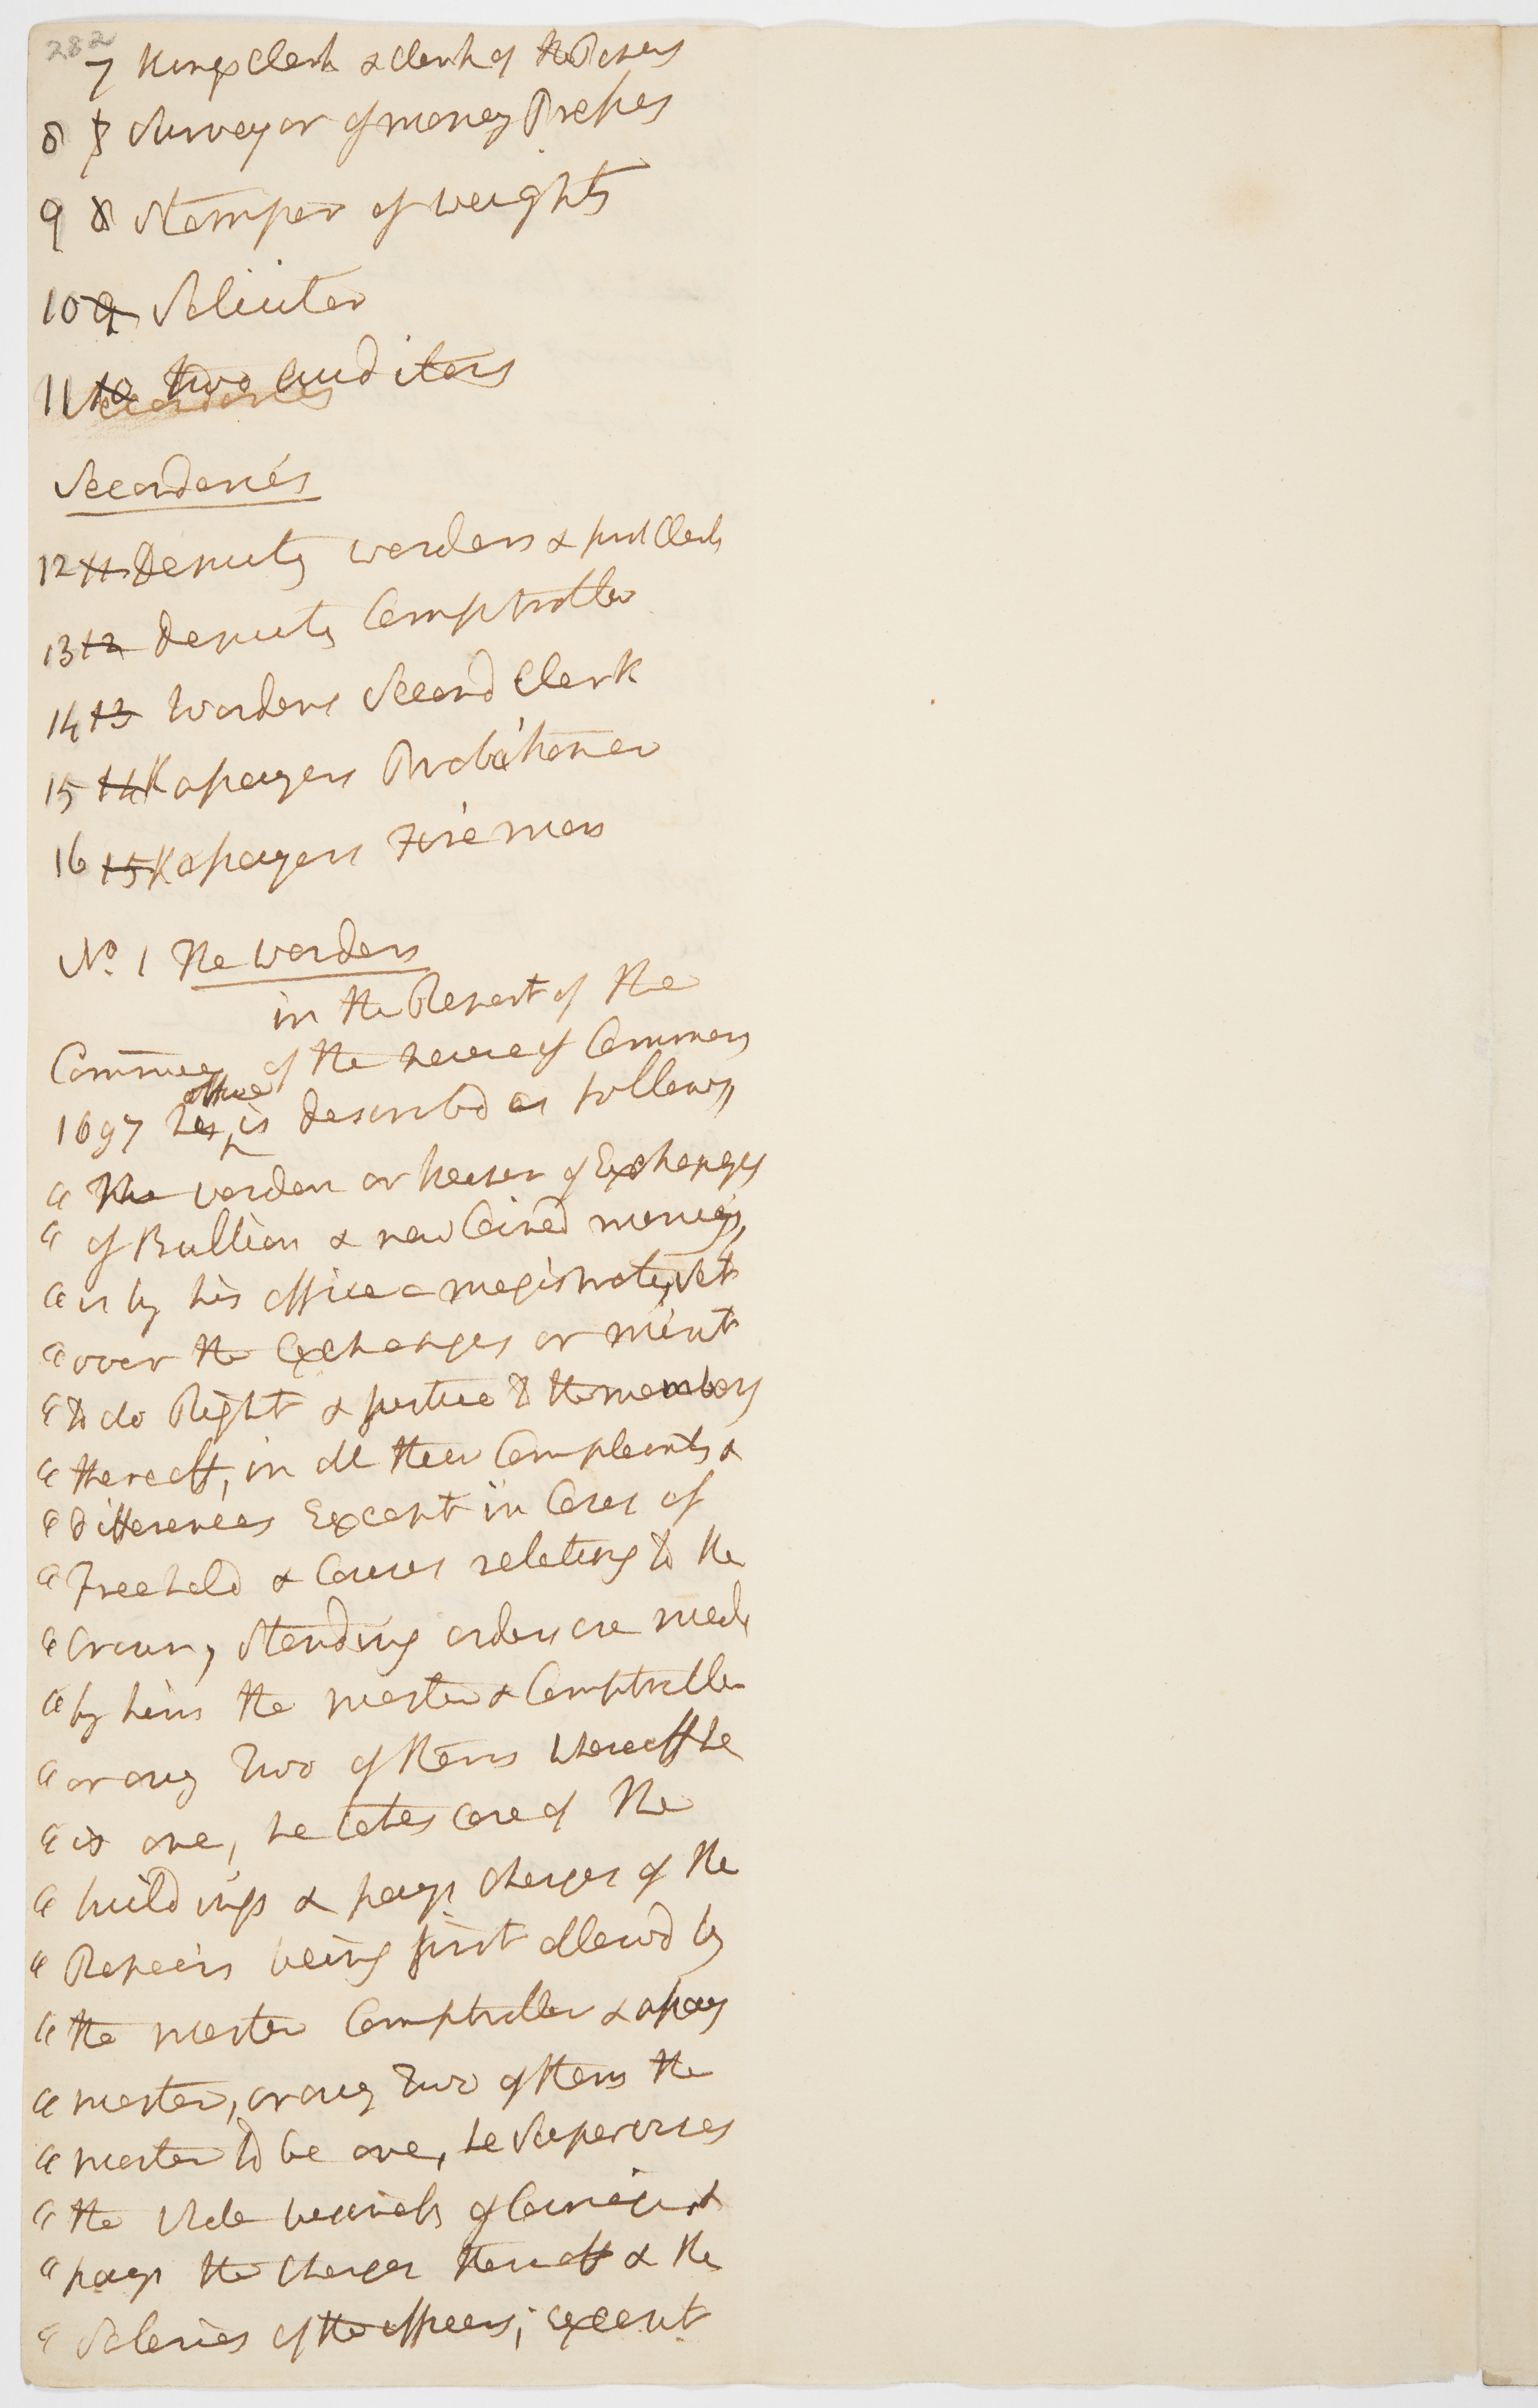 282
7 Kings Clerk & Clerk of the Papers
8 7 Surveyor of money Presses
9 8 Stamper of weights
10 9 Solicitor
11 10 two Auditors
Secondaries
Secondaries
12 11 Deputy wardens & first Clerk
13 12 Deputy Comptroller
14 13 Wardens Second Clerk
15 14 Kapayers Probationer
16 15 Kapayers Fire man
No. 1 The warden
in the Report of the
Committee of the house of Commons
office
1697 his is described as follows,
" The warden or keeper of Exchanges
" of Bullion & new Coined moneis,
" is by his office a magistrate, Set
" over the Exchanges or mint
" to do Right & justice to the members
" thereoff, in all their Complaints &
" differences Except in Cases of
" Freehold & Causes relating to the
" Crown, Standing orders are made
" by him the master & Comptroller
" or any Two of them whereoff he
" is one, he takes Care of the
" buildings & pays Charges of the
" Repairs being first allowd by
" the master Comptroller & assay
" master, or any Two of them the
" master to be one, he Supervises
" the whole business of Coinage, &
" pays the Charges thereoff & the
" Saleries of the officers; except